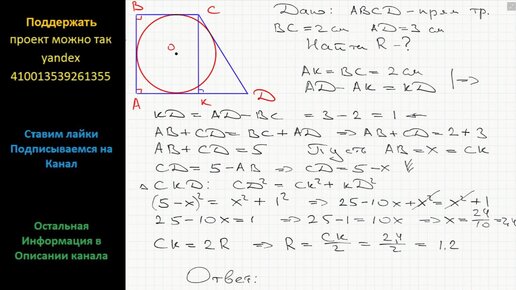 Поддержать
проект можно так
yandex
410013539261355
Ставим лайки
Подписываемся на
Канал
Остальная
Информация в
Описании канала
B C
O
A K D
Дано: ABCD – прям. тр.
BC = 2 см AD = 3 см
Найти R – ?
AK = BC = 2 см
AD – AK = KD | =>
KD = AD – BC = 3 – 2 = 1
AB + CD = BC + AD => AB + CD = 2 + 3
AB + CD = 5 Пусть AB = x = CK
CD = 5 – AB => CD = 5 – x
△ CKD: CD² = CK² + KD²
(5 – x)² = x² + 1² => 25 – 10x + x² = x² + 1
25 – 10x = 1 => 25 – 1 = 10x => x = 24/10 = 2,4
CK = 2R => R = CK/2 = 2,4/2 = 1,2
Ответ: